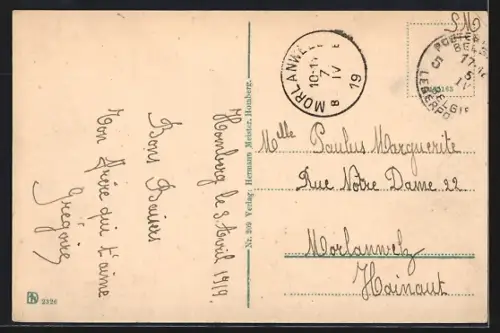 Homberg le 3 Avril 1919.
Bons Baisers
Ton frère qui t'aime
Grégoire
Nr. 209 Verlag: Hermann Meister, Homberg.
2326
MORLANWE
10-11
7
8 IV E
19
S.M
POSTE
BEL
17-18
5
IV
BELGIE
LEGERPO
5
Mlle Paulus Marguerite
Rue Notre Dame 22
Morlanwelz
Hainaut